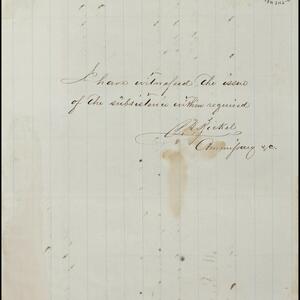 I have witnessed the issue
of the subsistence within required
Nickel
&c.